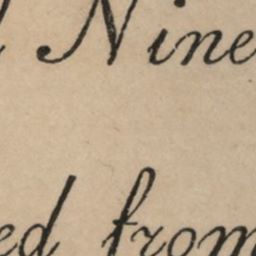 Nine
ed from